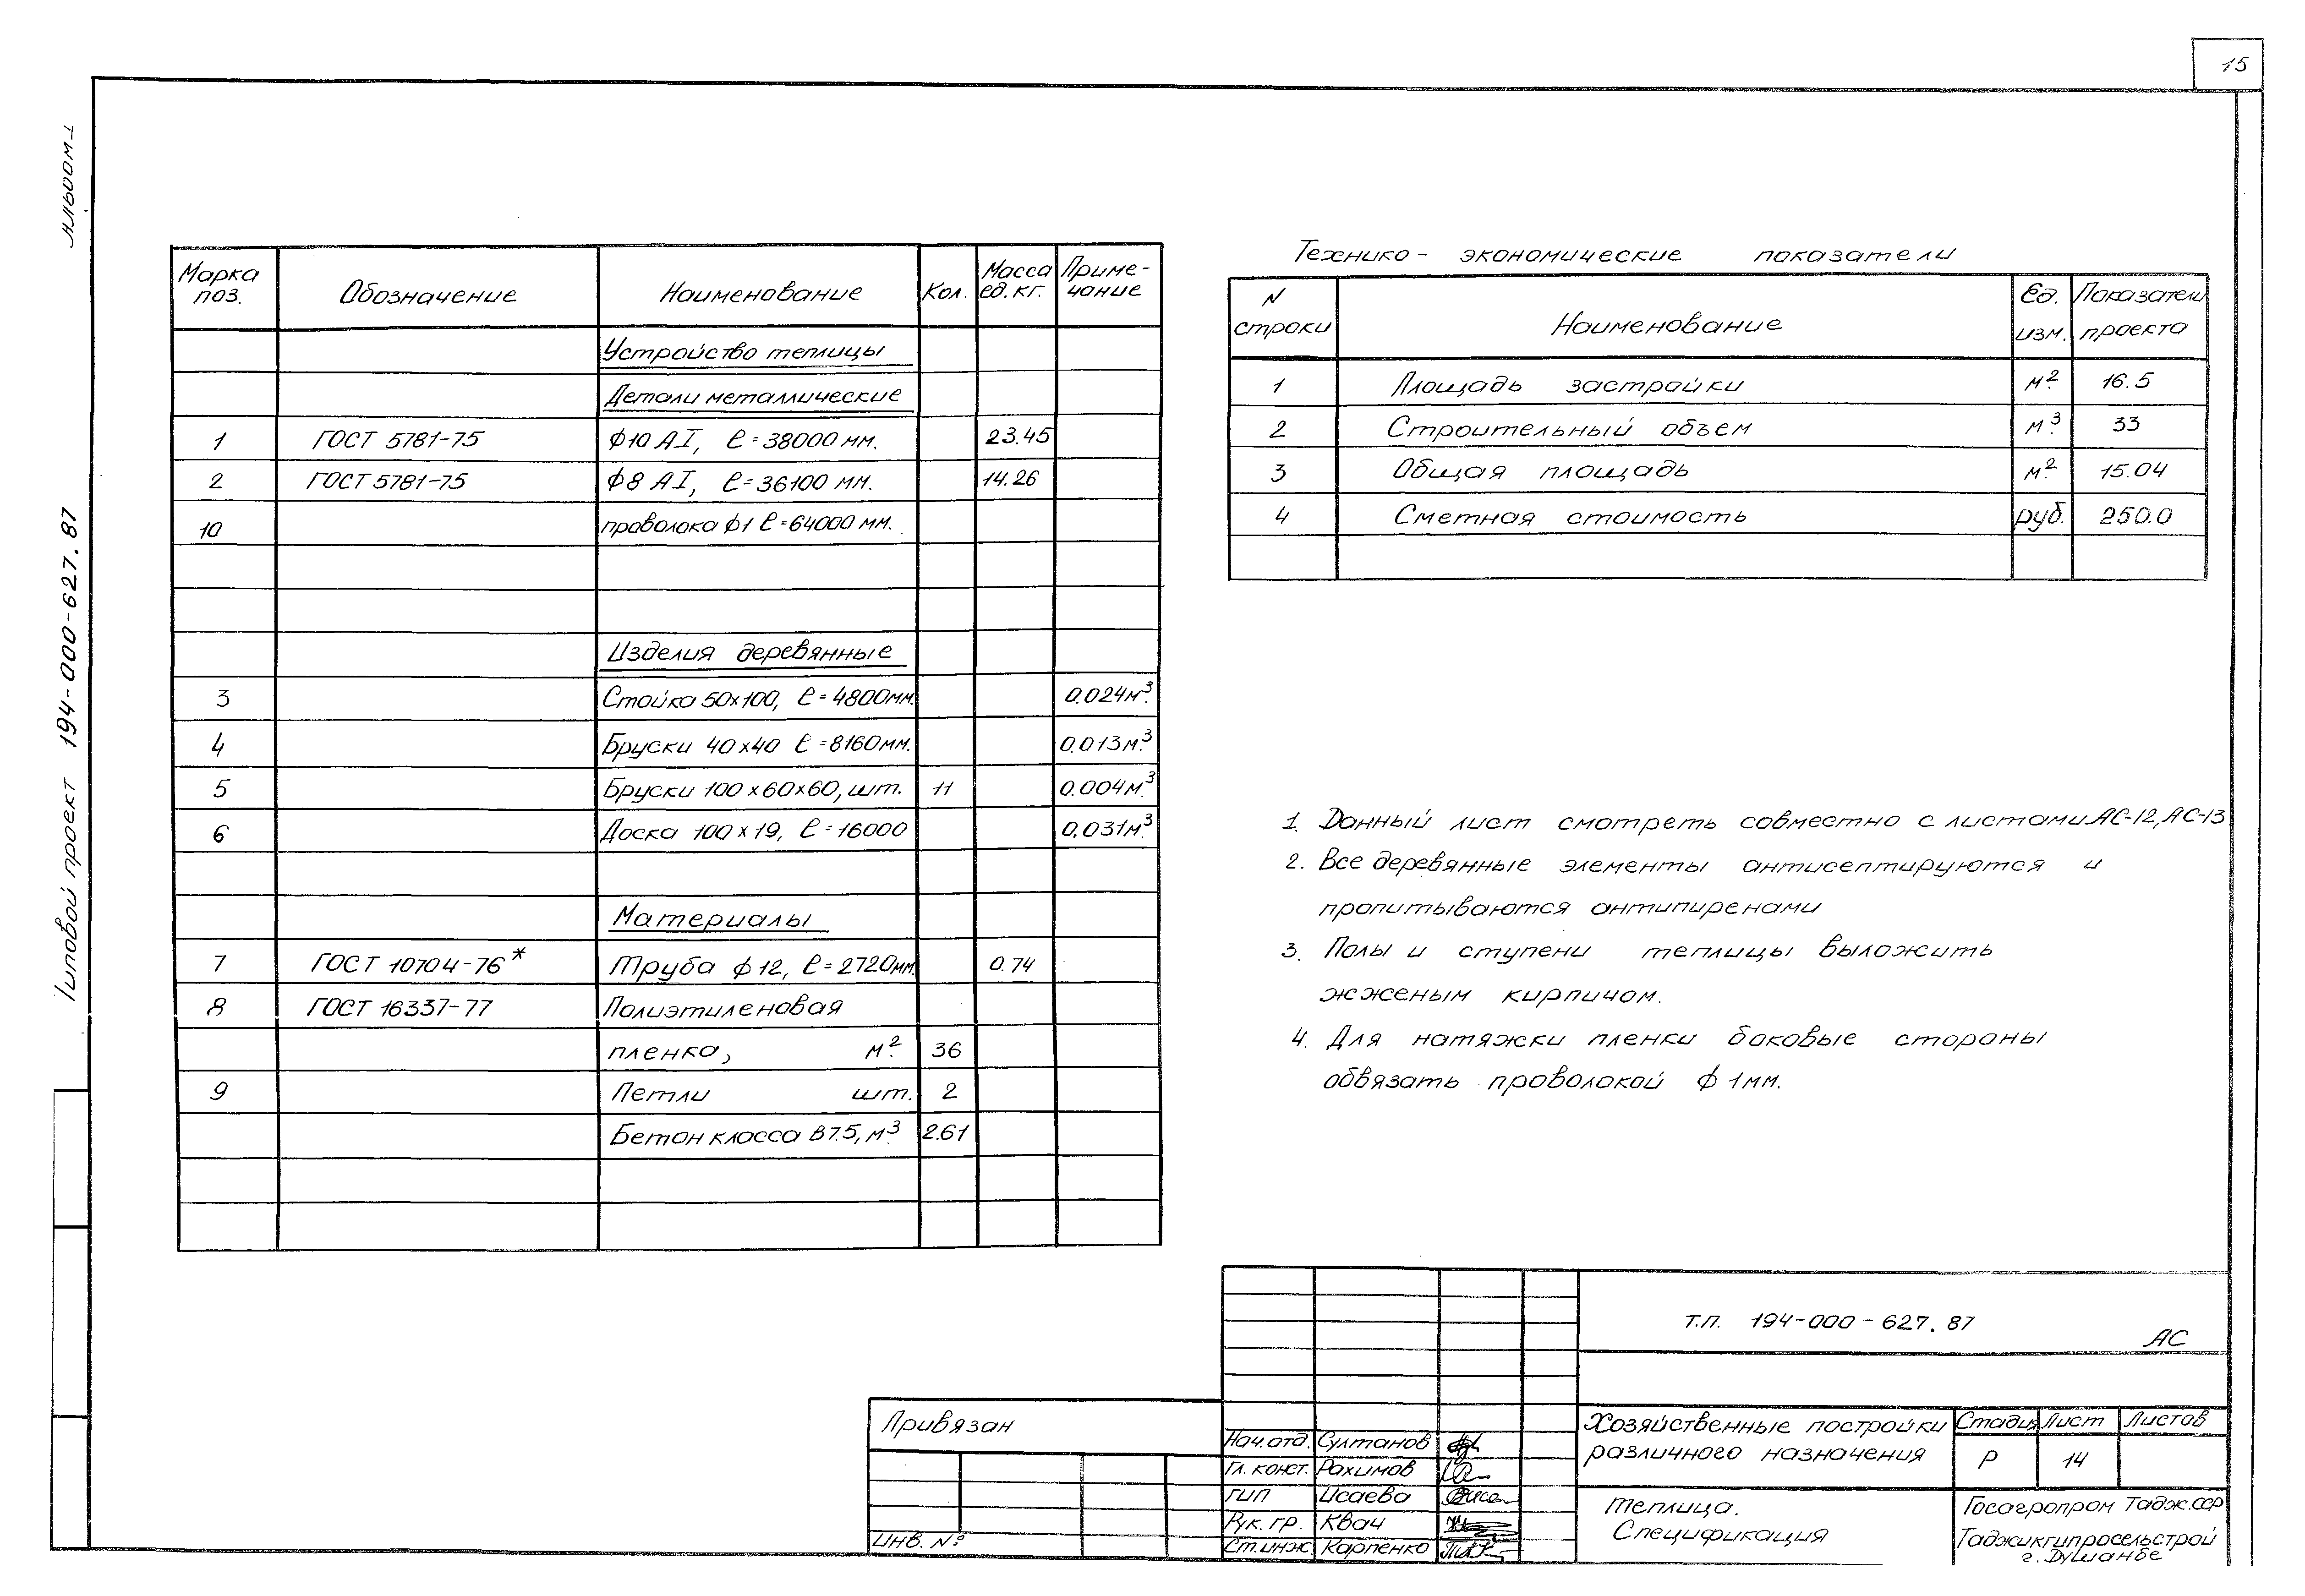 15
Альбом 1
Типовой проект 194-000-627.87
Марка поз. Обозначение Наименование Кол. Масса ед.кг. Приме-чание
Устройство теплицы
Детали металлические
1 ГОСТ 5781-75 ф10 АI, ℓ=38000 мм. 23.45
2 ГОСТ 5781-75 ф8 АI, ℓ=36100 мм. 14.26
10 проволока ф1 ℓ=64000 мм.
Изделия деревянные
3 Стойка 50х100, ℓ=4800мм. 0.024м³.
4 Бруски 40х40 ℓ=8160мм. 0.013м³.
5 Бруски 100х60х60, шт. 11 0.004м³.
6 Доска 100х19, ℓ=16000 0.031м³.
Материалы
7 ГОСТ 10704-76* Труба ф12, ℓ=2720мм. 0.74
8 ГОСТ 16337-77 Полиэтиленовая
пленка, м². 36
9 Петли шт. 2
Бетон класса В7.5, м³. 2.61
Технико-экономические показатели
N строки Наименование Ед. изм. Показатели проекта
1 Площадь застройки м². 16.5
2 Строительный объем м³. 33
3 Общая площадь м². 15.04
4 Сметная стоимость руб. 250.0
1. Данный лист смотреть совместно с листами АС-12, АС-13
2. Все деревянные элементы антисептируются и
пропитываются антипиренами
3. Полы и ступени теплицы выложить
жженым кирпичом.
4. Для натяжки пленки боковые стороны
обвязать проволокой ф 1мм.
Т.П. 194-000-627.87
АС
Привязан
Инв. №
Нач.отд. Султанов
Гл. конст. Рахимов
ГИП Исаева
Рук. гр. Квач
Ст.инж. Карпенко
Хозяйственные постройки
различного назначения
Стадия Лист Листов
Р 14
Теплица.
Спецификация
Госагропром Тадж.ССР
Таджикгипросельстрой
г. Душанбе